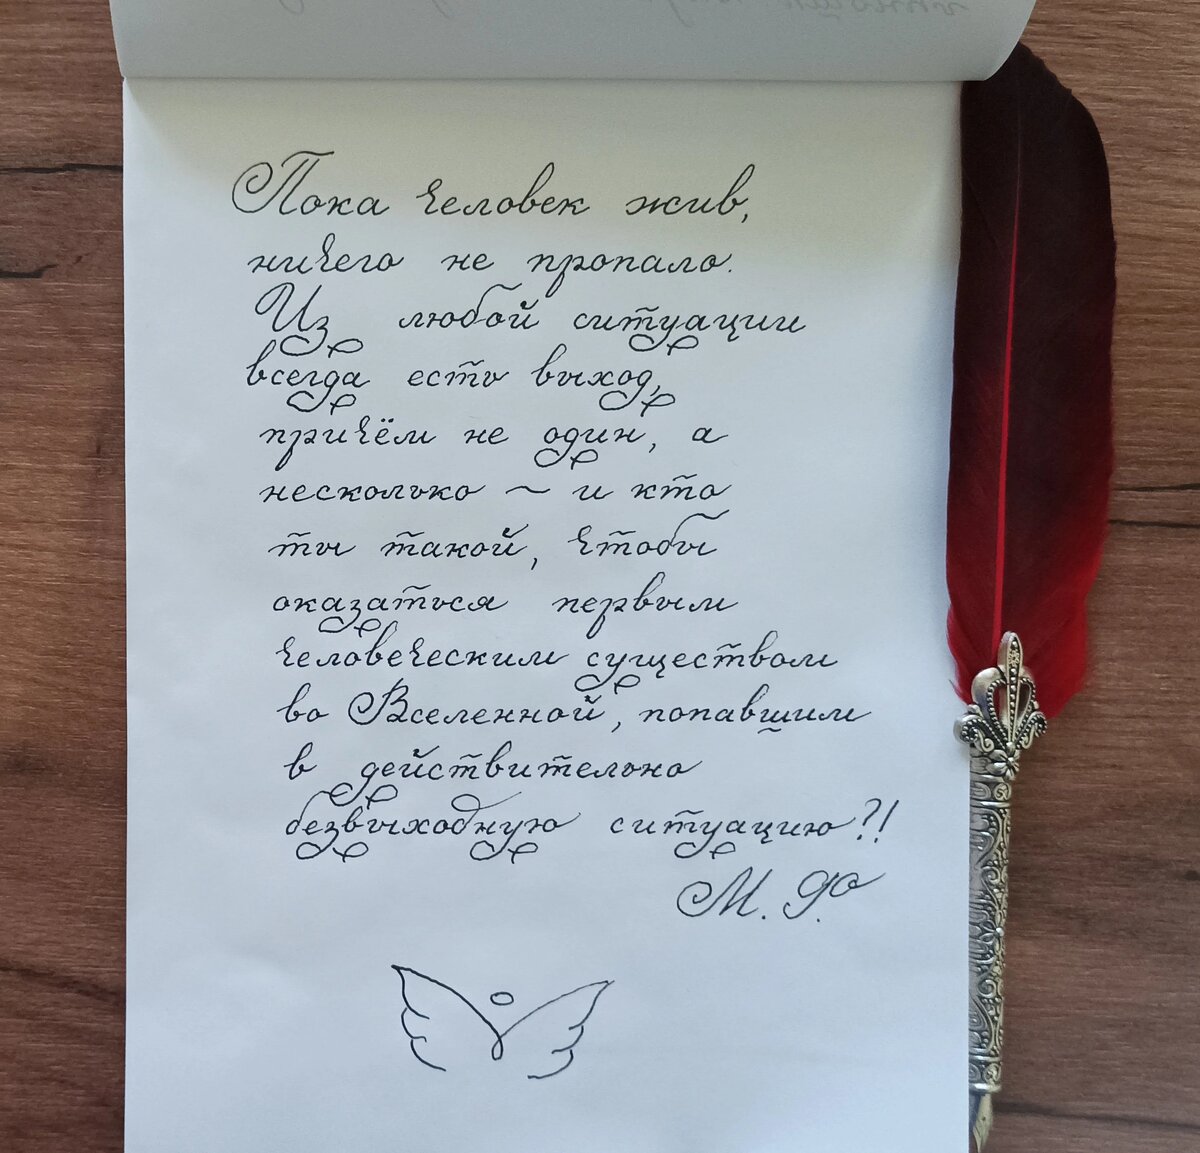 Пока человек жив,
ничего не пропало.
Из любой ситуации
всегда есть выход,
причём не один, а
несколько ~ и кто
ты такой, чтобы
оказаться первым
человеческим существом
во Вселенной, попавшим
в действительно
безвыходную ситуацию?!